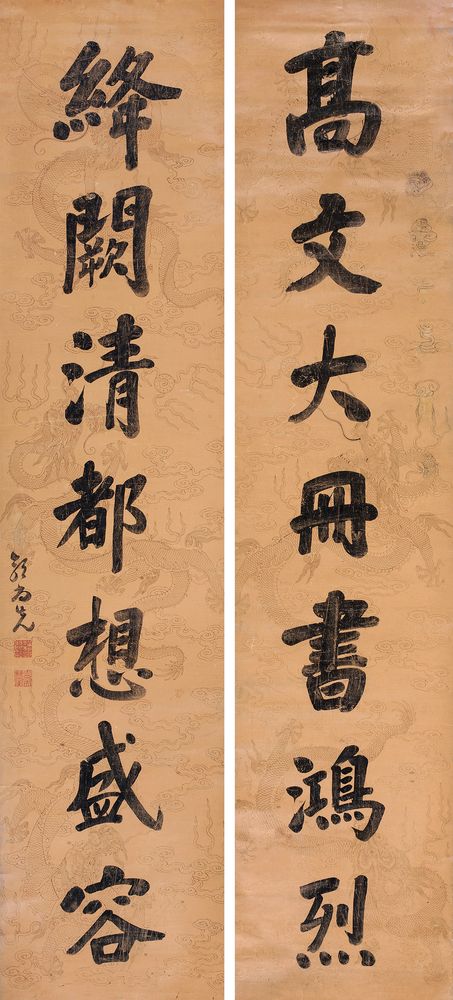 高文大冊書鴻烈
絳闕清都想盛容
郭尚先